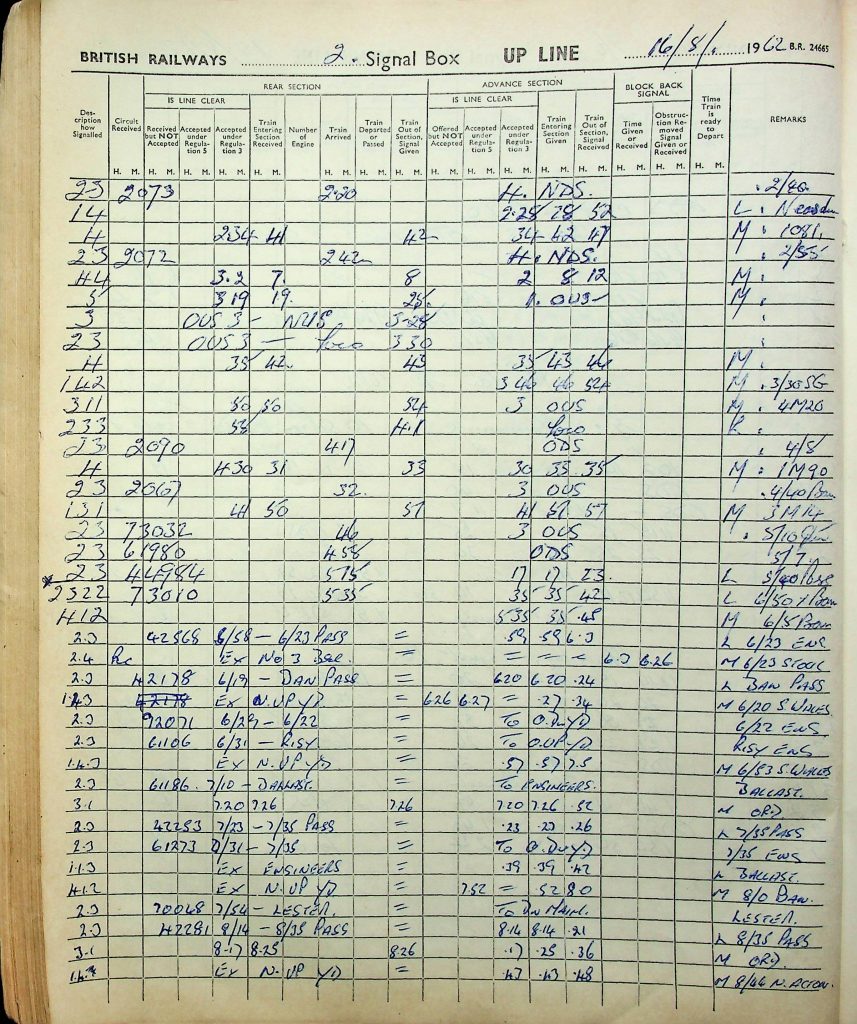 BRITISH RAILWAYS 2. Signal Box UP LINE 16/8/. 1962 B.R. 24665
REAR SECTION ADVANCE SECTION BLOCK BACK SIGNAL
IS LINE CLEAR IS LINE CLEAR
Description how Signalled Circuit Received Received but NOT Accepted Accepted under Regulation 5 Accepted under Regulation 3 Train Entering Section Received Number of Engine Train Arrived Train Departed or Passed Train Out of Section, Signal Given Offered but NOT Accepted Accepted under Regulation 5 Accepted under Regulation 3 Train Entering Section Given Train Out of Section, Signal Received Time Given or Received Obstruction Removed Signal Given or Received Time Train is ready to Depart REMARKS
H. M. H. M. H. M. H. M. H. M. H. M. H. M. H. M. H. M. H. M. H. M. H. M. H. M. H. M. H. M. H. M.
23 2073 2.20 H. NDS. . 2/40.
14 2.28 28 52 L .
4 2.34 41 42 34 42 47 M . 1081.
23 2072 242 H. NDS. . 2/55
44 3.2 7. 8 2 8 12 M .
5 3 19 19. 25. 1. OUS M .
3 OUS 3 - 3-28 .
23 OUS 3 — Loco 3 30 .
4 35 42. 43 35 43 46 M .
142 3 46 46 54 M . 3/30 SG
311 50 50 54 3 OUS M . 4M20
233 58 4.1 Loco R .
23 2070 417 ODS . 4/8
4 4 30 31 33 30 33 35 M : 1M90
23 2067 32. 3 OUS . 4/40
131 41 50 57 41 57 57 M
23 73032 46 3 OUS . 5/10
23 61980 4 58 ODS 5/7.
23 44984 5 15 17 17 23. L
2322 73010 5 35 35 35 42 L 6/50
412 5 35 35 .45 M 6/5
2.3 42568 6/58 - 6/23 PASS = .59 .59 6.3 L 6/23 ENG
2.4 Rc EX No 3 BOX. = = = = 6.3 6.26 M 6/23 STOCK
2.3 42178 6/19 - DAN PASS = 620 620 .24 L DAN PASS
1.4.3 42178 EX N. UP YD = 6 26 6.27 = .27 .34 M 6/20 S. WALES
2.3 92071 6/29 - 6/22 = TO O. D YD 6/22 ENG
2.3 61106 6/31 - RISY = TO O.UP YD RISY ENG
1.4.3 EX N. UP YD = .57 .57 7.5 M 6/53 S. WALES
2.3 61186. 7/10 - BALLAST. = TO ENGINEERS. BALLAST.
3.1 7.20 7 26 7 26 7 20 7 26 .32 M ORD
2.3 42253 7/23 - 7/35 PASS = .23 .23 .26 L 7/35 PASS
2.3 61273 7/31 - 7/35 = TO O. DN YD 7/35 ENG
1.1.3 EX ENGINEERS = .39 .39 .42 L BALLAST.
4.1.2 EX N. UP YD = 7 52 = .52 8 0 M 8/0 DAN.
2.3 70048 7/54 - LESTER. = TO DN MAIN. LESTER.
2.3 42281 8/14 - 8/35 PASS = 8.14 8.14 .21 L 8/35 PASS
3.1 8.17 8.25 8 26 .17 .25 .36 M ORD.
EX N. UP YD = .43 .43 .48 M 8/44 N. ACTON.